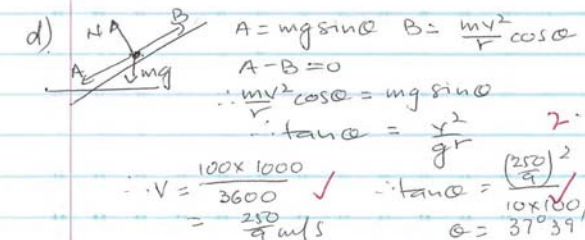 d) N A B A mg A = mg sinθ B = mv²/r cosθ
A - B = 0
∴ mv²/r cosθ = mg sinθ
∴ tanθ = v²/gr 2
∴ V = 100 x 1000 / 3600 ✓ ∴ tanθ = (250/9)² / 10 x 100 ✓
= 250/9 m/s θ = 37°39'